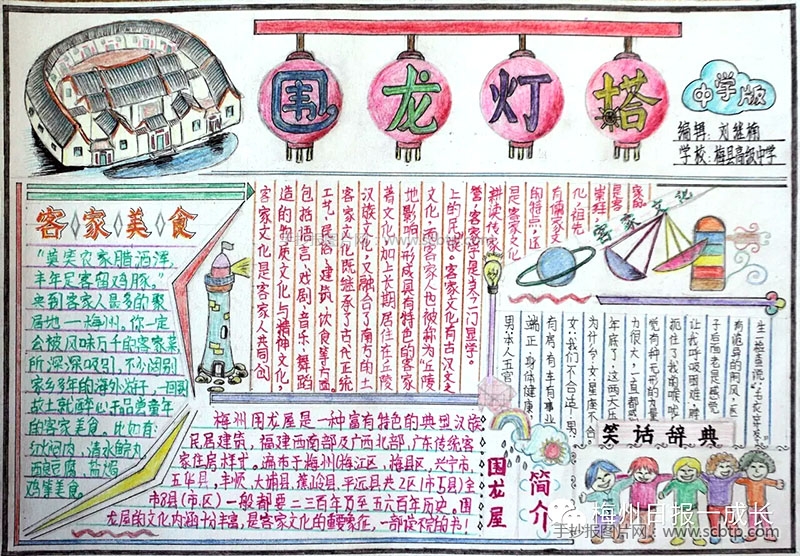 围龙灯塔
中学版
编辑：刘继楠
学校：梅县高级中学
客家美食
“莫笑农家腊酒浑，
丰年足客留鸡豚。”
来到客家人最多的聚
居地一梅州。你一定
会被风味万千的客家菜
所深深吸引，不少阔别
家乡多年的海外游子，一回到
故土就醉心于品尝童年
的客家美食。比如有：
红焖肉、清水鲩丸
酿豆腐、盐焗
鸡等美食。
客家文化
客家文化是客家人共同创
造的物质文化与精神文化，
包括语言、戏剧、音乐、舞蹈
工艺、民俗、建筑、饮食等方面
客家文化既继承了古代正统
汉族文化，又融合了南方的土
着文化，加上长期居住在丘陵
地影响，形成具有特色的客家
文化，而客家人也被称为“丘陵
上的民族。客家文化有古汉文
誉，客家学是当今一门显学。
耕读传家
是客家文化
的特点，还
有儒家文
化，祖先
崇拜，
梅州围龙屋是一种富有特色的典型汉族
民居建筑，福建西南部及广西北部，广东传统客
家住房样式。遍布于梅州（梅江区，梅县区，兴宁市，
五华县，丰顺，大埔县，蕉岭县，平远县共2区1市5县）全
市8县（市、区）一般都要二三百年乃至五六百年历史。围
龙屋的文化内涵十分丰富，是客家文化的重要象征，一部读不完的书！
围龙屋
简介
男：本人五官
端正，身体健康
有房有车有事业
女：我们不合适！男：
为什么？女：星座不合
笑话辞典
梅州日报一成长
手抄报图片网：www.scbtp.com
手抄报图片网：www.scbtp.com